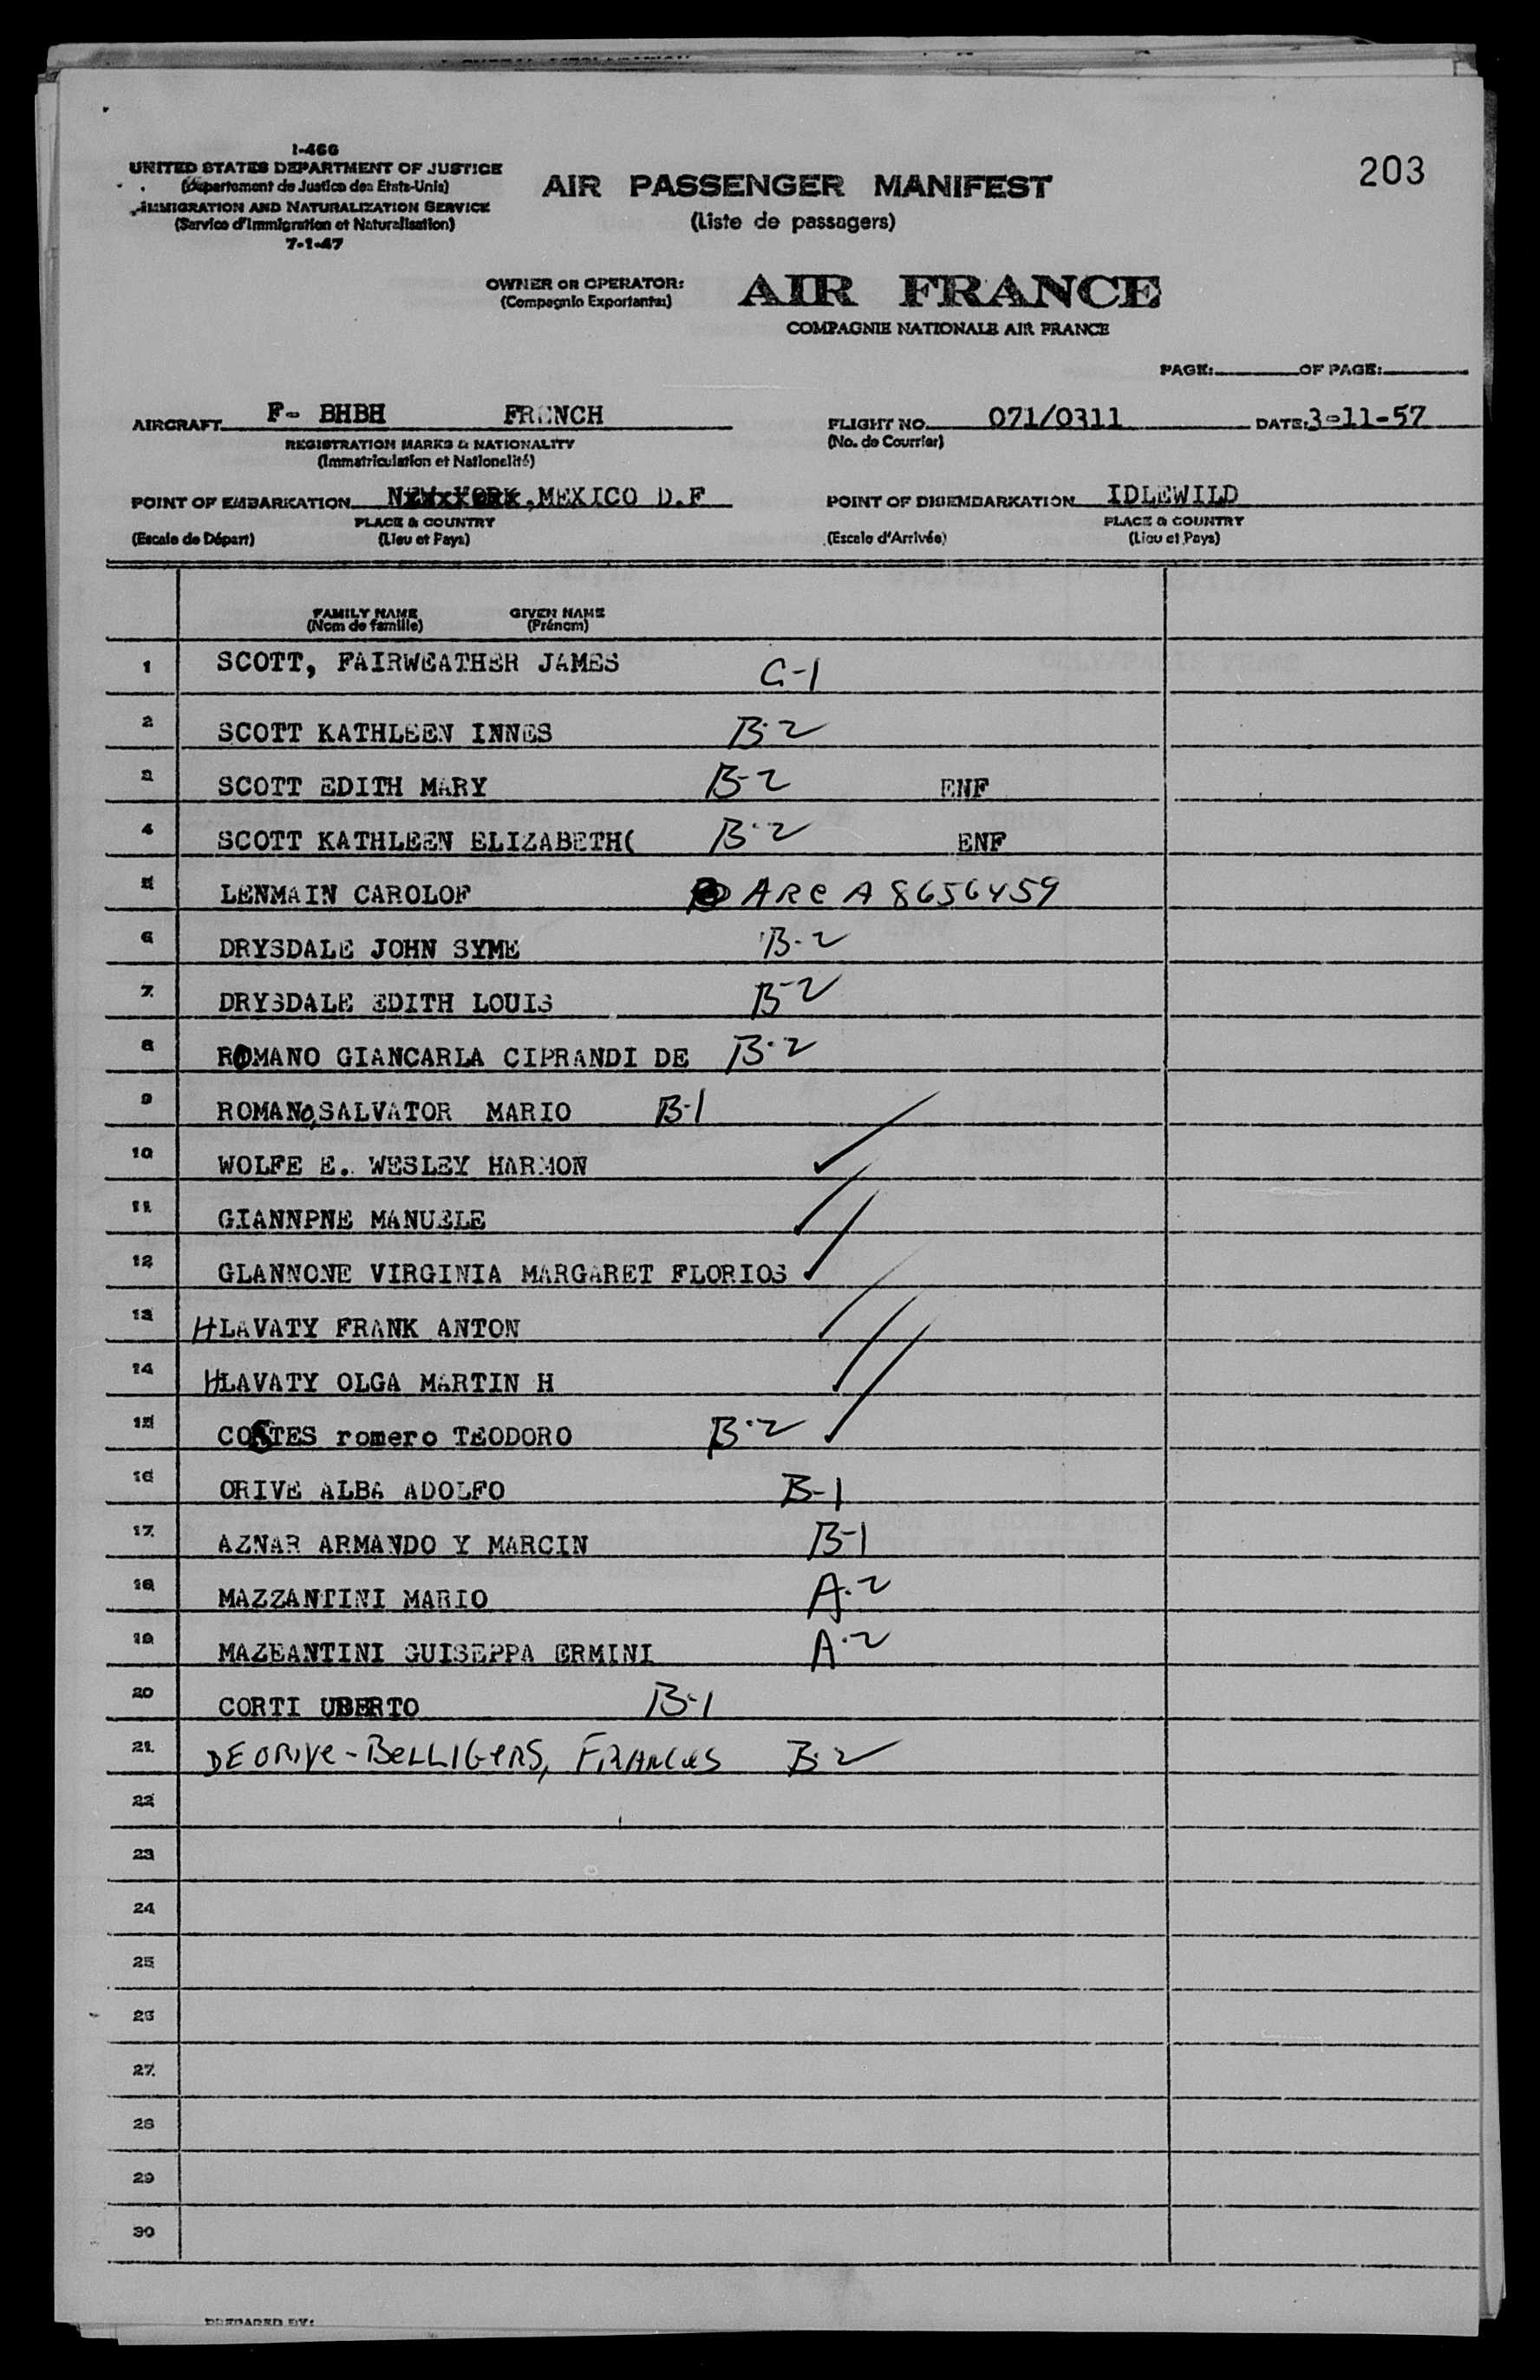 I-466
UNITED STATES DEPARTMENT OF JUSTICE
(Département de Justice des Etats-Unis)
IMMIGRATION AND NATURALIZATION SERVICE
(Service d'Immigration et Naturalisation)
7-1-47
AIR PASSENGER MANIFEST
(Liste de passagers)
203
OWNER OR OPERATOR:
(Compagnie Exportante:)
AIR FRANCE
COMPAGNIE NATIONALE AIR FRANCE
PAGE: OF PAGE:
AIRCRAFT F- BHBH FRENCH
REGISTRATION MARKS & NATIONALITY
(Immatriculation et Nationalité)
FLIGHT NO. 071/0311 DATE: 3-11-57
(No. de Courrier)
POINT OF EMBARKATION NEW YORK, MEXICO D.F
PLACE & COUNTRY
(Escale de Départ) (Lieu et Pays)
POINT OF DISEMBARKATION IDLEWILD
PLACE & COUNTRY
(Escale d'Arrivée) (Lieu et Pays)
FAMILY NAME GIVEN NAME
(Nom de famille) (Prénom)
1 SCOTT, FAIRWEATHER JAMES C-1
2 SCOTT KATHLEEN INNES B-2
3 SCOTT EDITH MARY B-2 ENF
4 SCOTT KATHLEEN ELIZABETH( B-2 ENF
5 LENMAIN CAROLOF ARC A 8656459
6 DRYSDALE JOHN SYME B-2
7. DRYSDALE EDITH LOUIS B-2
8 ROMANO GIANCARLA CIPRANDI DE B-2
9 ROMANO,SALVATOR MARIO B-1
10 WOLFE E. WESLEY HARMON
11. GIANNPNE MANUELE
12 GLANNONE VIRGINIA MARGARET FLORIOS
13 HLAVATY FRANK ANTON
14 HLAVATY OLGA MARTIN H
15 COSTES romero TEODORO B-2
16 ORIVE ALBA ADOLFO B-1
17. AZNAR ARMANDO Y MARCIN B-1
18 MAZZANTINI MARIO A-2
19 MAZEANTINI GUISEPPA ERMINI A-2
20 CORTI UBERTO B-1
21. DE ORIVE-BELLIGERS, FRANCES B-2
22
23
24
25
26
27.
28
29
30
PREPARED BY: